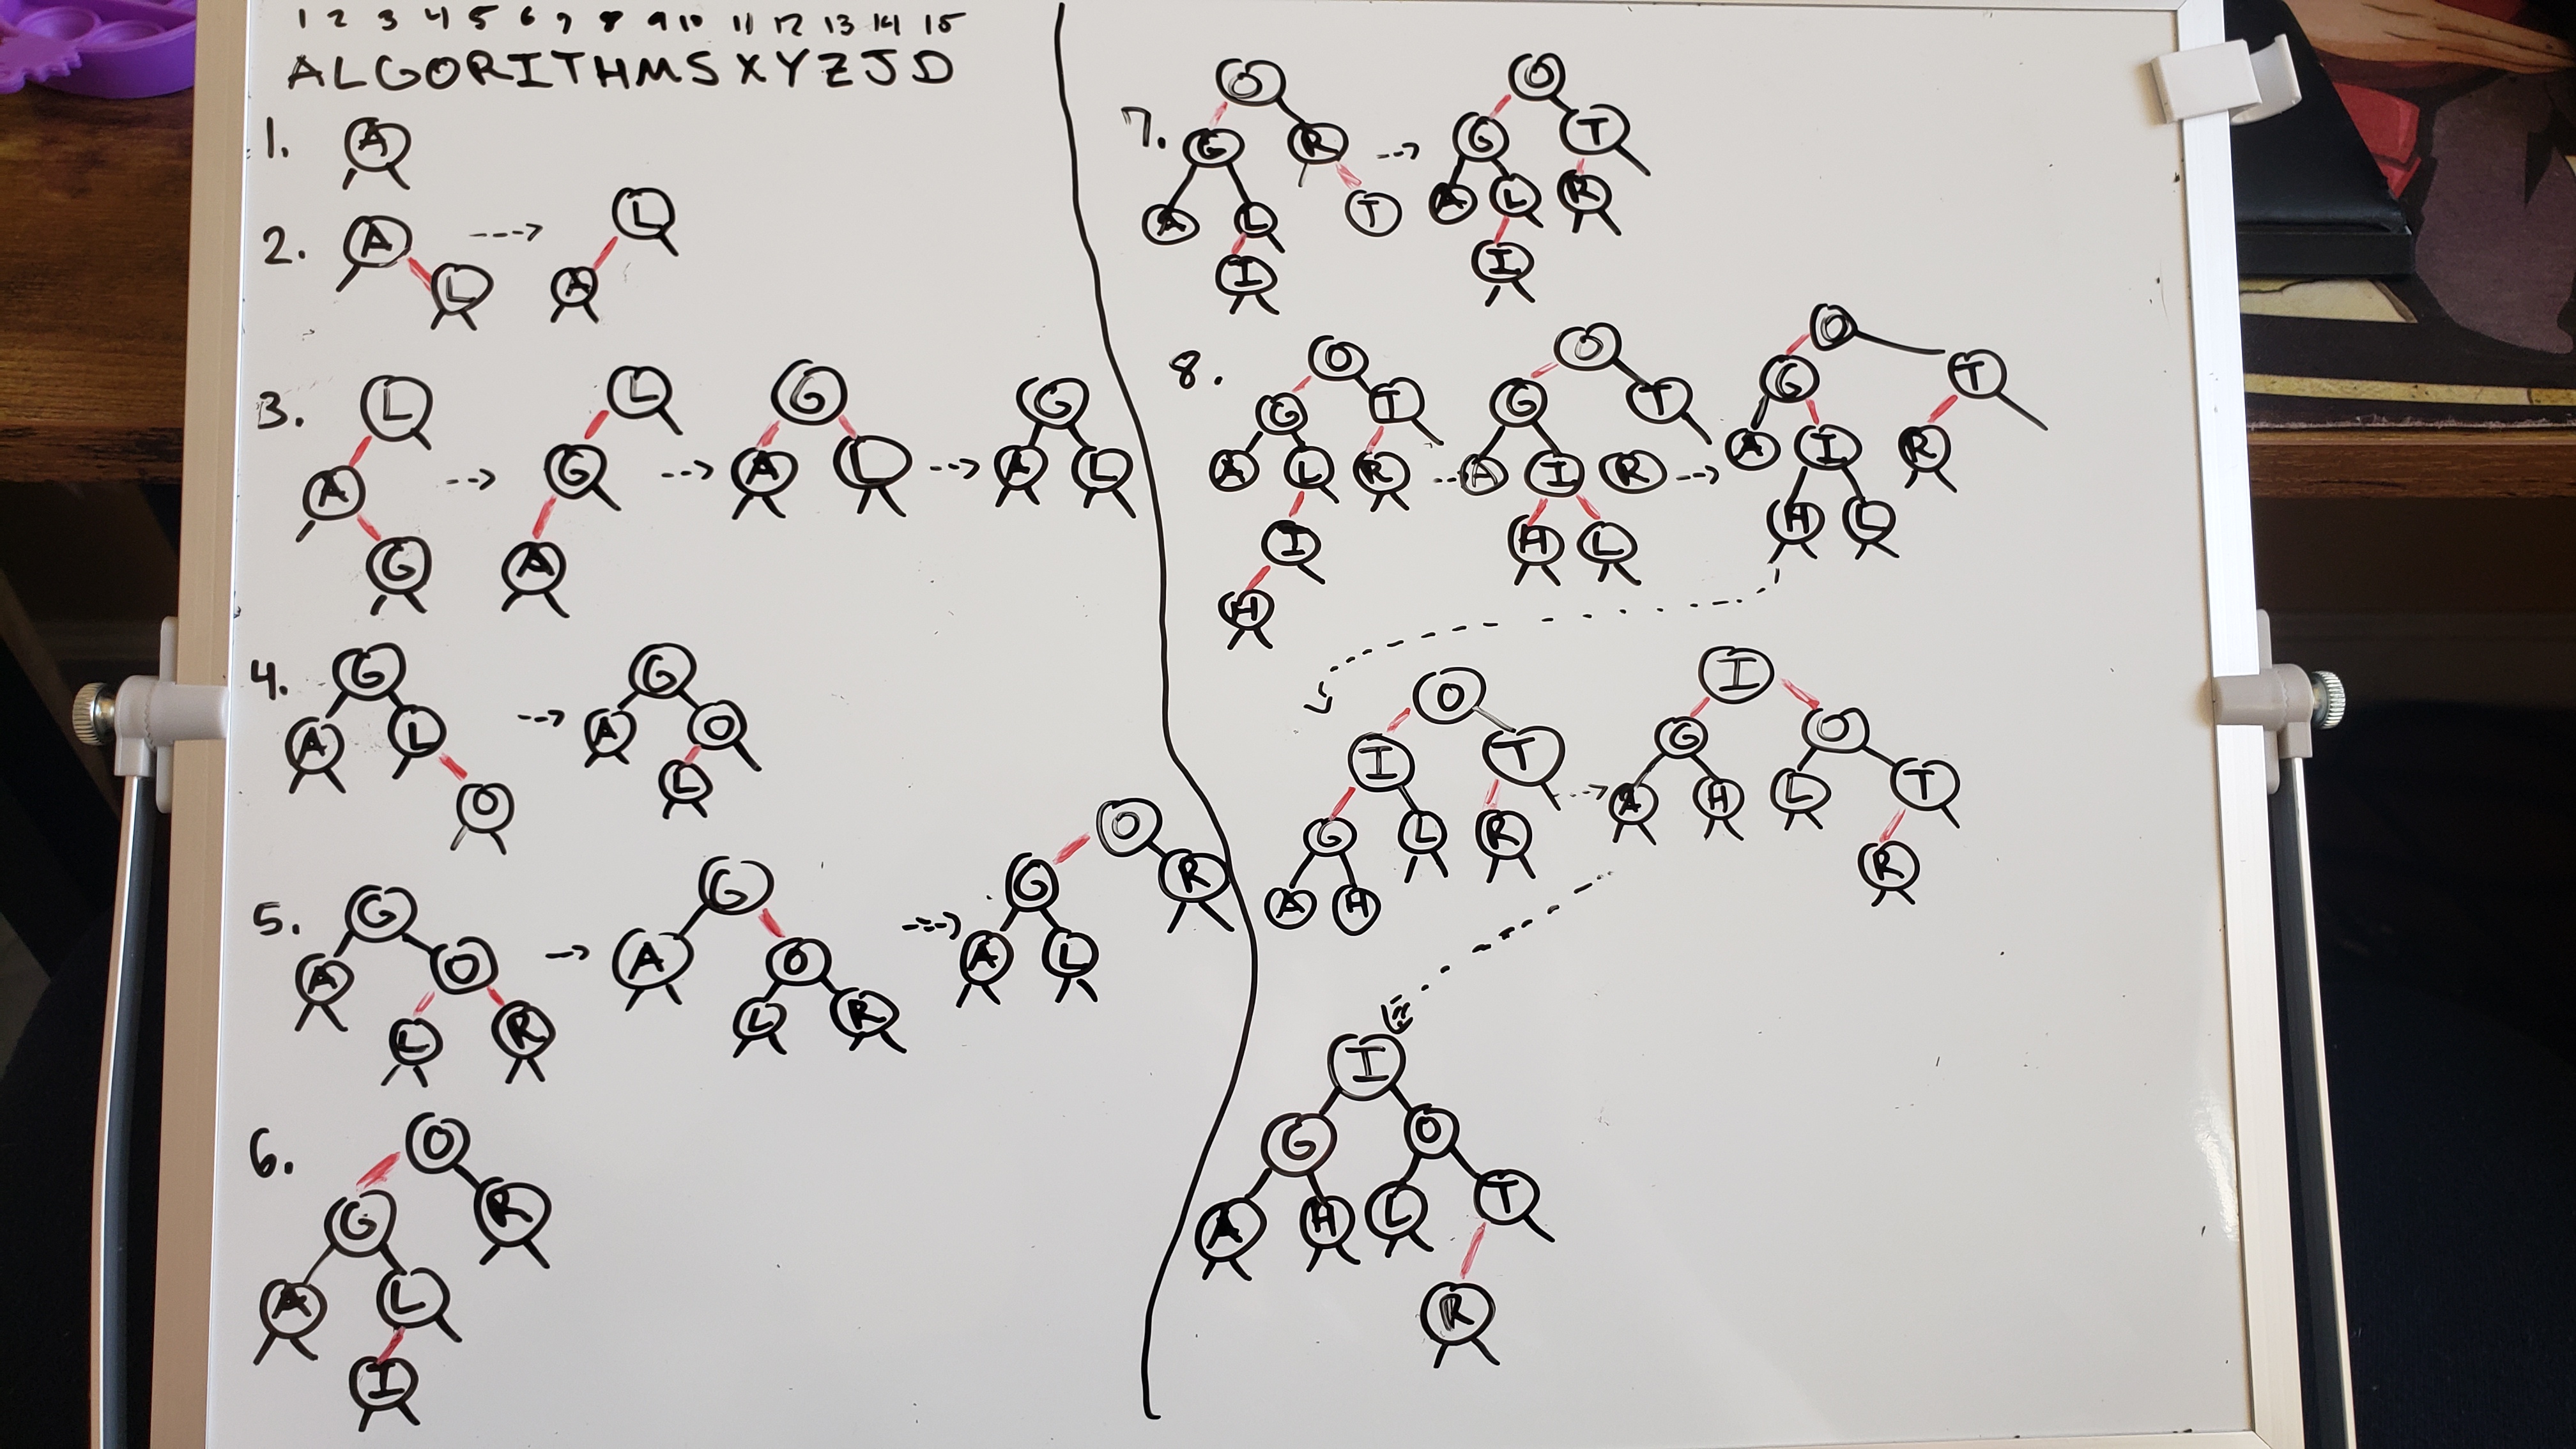 1 2 3 4 5 6 7 8 9 10 11 12 13 14 15
ALGORITHMS XYZJD
1. A
2. A L --> L A
3. L A G --> L G A --> G A L --> G A L
4. G A L O --> G A O L
5. G A O L R --> G A O L R --> O G R A L
6. O G R A L I
7. O G R A L T I --> O G T A L R I
8. O G T A L R I H --> O G T A I R H L --> O G T A I R H L
O I T G L R A H --> I G O A H L T R
I G O A H L T R